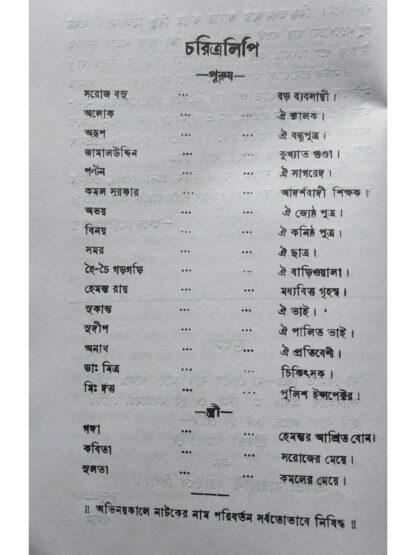 চরিত্রলিপি
—পুরুষ—
সরোজ বসু ... ... বড় ব্যবসায়ী।
অলোক ... ... ঐ শ্যালক।
অরূপ ... ... ঐ বন্ধুপুত্র।
জামালউদ্দিন ... ... কুখ্যাত গুণ্ডা।
পল্টন ... ... ঐ সাগরেদ।
কমল সরকার ... ... আদর্শবাদী শিক্ষক।
অভয় ... ... ঐ জ্যেষ্ঠ পুত্র।
বিনয় ... ... ঐ কনিষ্ঠ পুত্র।
সমর ... ... ঐ ছাত্র।
হৈ-চৈ গড়গড়ি ... ... ঐ বাড়িওয়ালা।
হেমন্ত রায় ... ... মধ্যবিত্ত গৃহস্থ।
সুকান্ত ... ... ঐ ভাই।
সুদীপ ... ... ঐ পালিত ভাই।
অনাথ ... ... ঐ প্রতিবেশী।
ডাঃ মিত্র ... ... চিকিৎসক।
মিঃ দত্ত ... ... পুলিশ ইন্সপেক্টর।
—স্ত্রী—
গঙ্গা ... ... হেমন্তর আশ্রিত বোন।
কবিতা ... ... সরোজের মেয়ে।
সুলতা ... ... কমলের মেয়ে।
॥ অভিনয়কালে নাটকের নাম পরিবর্তন সর্বতোভাবে নিষিদ্ধ ॥